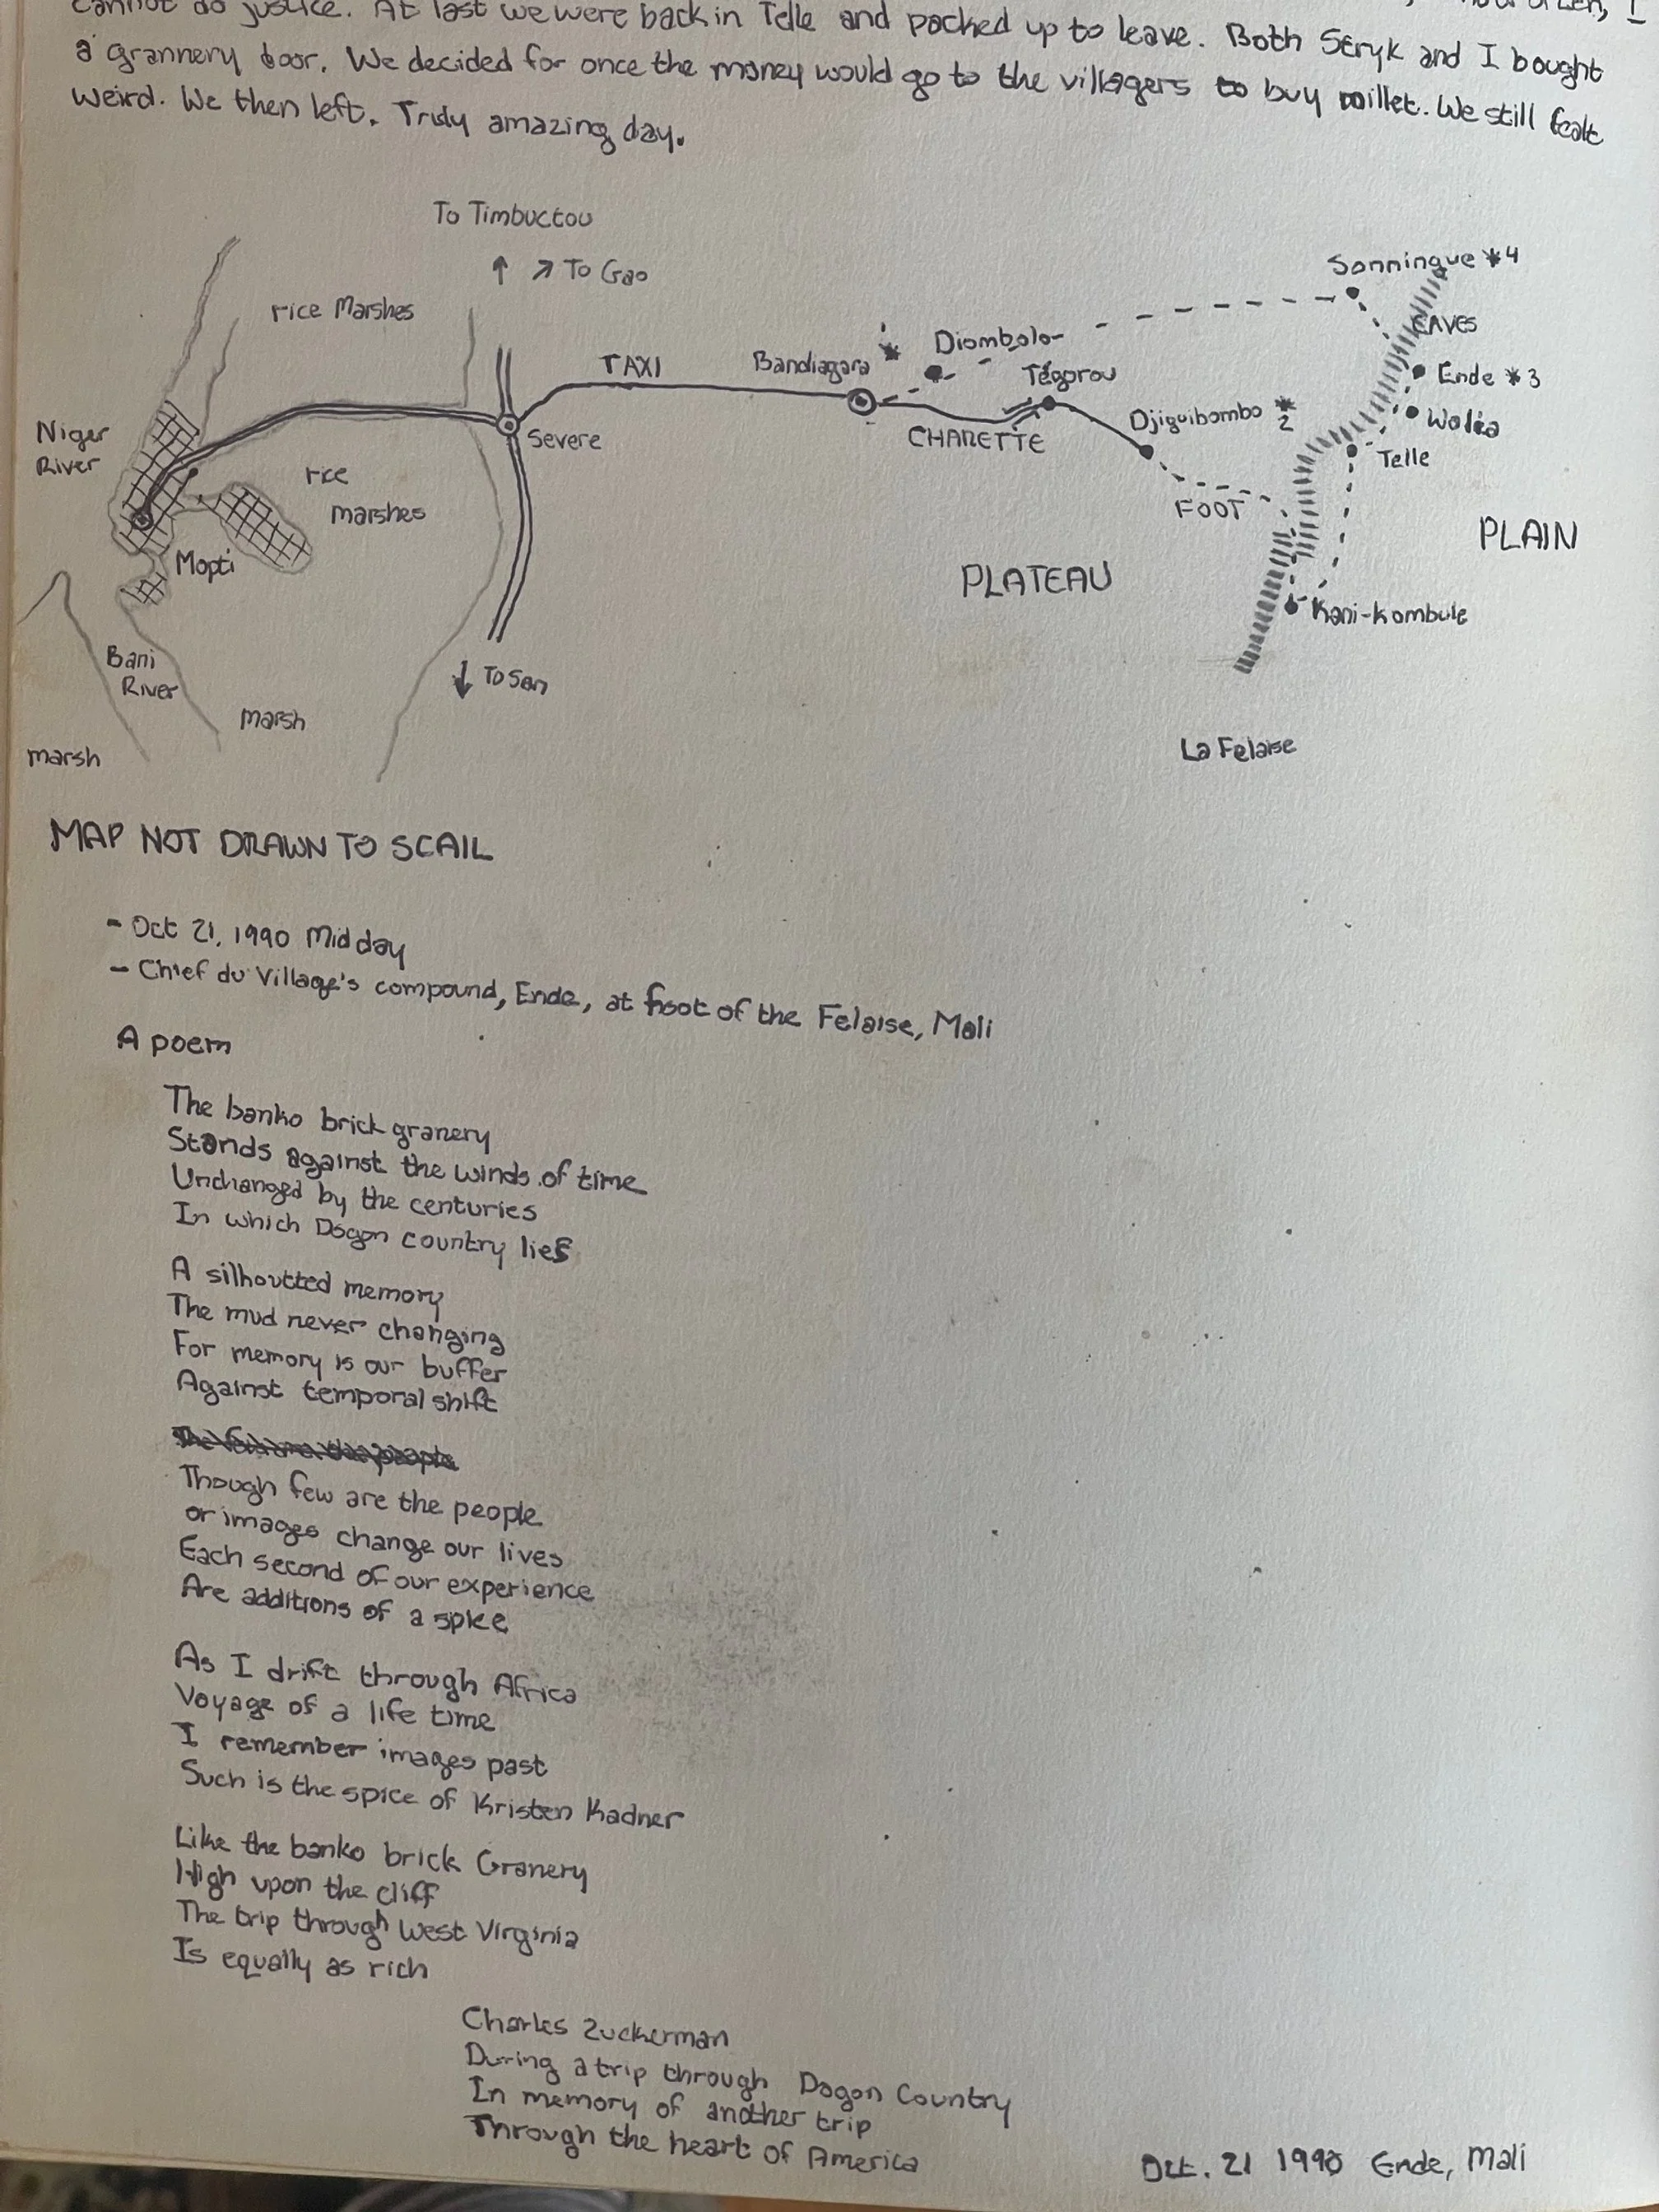 cannot do justice. At last we were back in Telle and packed up to leave. Both Stryk and I bought
a grannery door. We decided for once the money would go to the villagers to buy millet. We still fealt
weird. We then left. Truly amazing day.
To Timbuctou
↑ ↗ To Gao
rice Marshes
Sonningue *4
CAVES
Diombolo-
TAXI
Bandiagara *
Tégorou
Ende *3
Djiguibombo *2
Walia
Niger
River
Severe
CHARETTE
Telle
rice
marshes
FOOT
PLAIN
Mopti
PLATEAU
Kani-Kombule
Bani
River
↓ To San
marsh
marsh
La Felaise
MAP NOT DRAWN TO SCAIL
- Oct 21, 1990 Mid day
- Chief du Village's compound, Ende, at foot of the Felaise, Mali
A poem
The banko brick granery
Stands against the winds of time
Unchanged by the centuries
In which Dogon country lies
A silhoutted memory
The mud never changing
For memory is our buffer
Against temporal shift
Though few are the people
or images change our lives
Each second of our experience
Are additions of a spice
As I drift through Africa
Voyage of a life time
I remember images past
Such is the spice of Kristen Kadner
Like the banko brick Granery
High upon the cliff
The trip through West Virginia
Is equally as rich
Charles Zuckerman
During a trip through Dogon Country
In memory of another trip
Through the heart of America
Oct. 21 1990 Ende, Mali